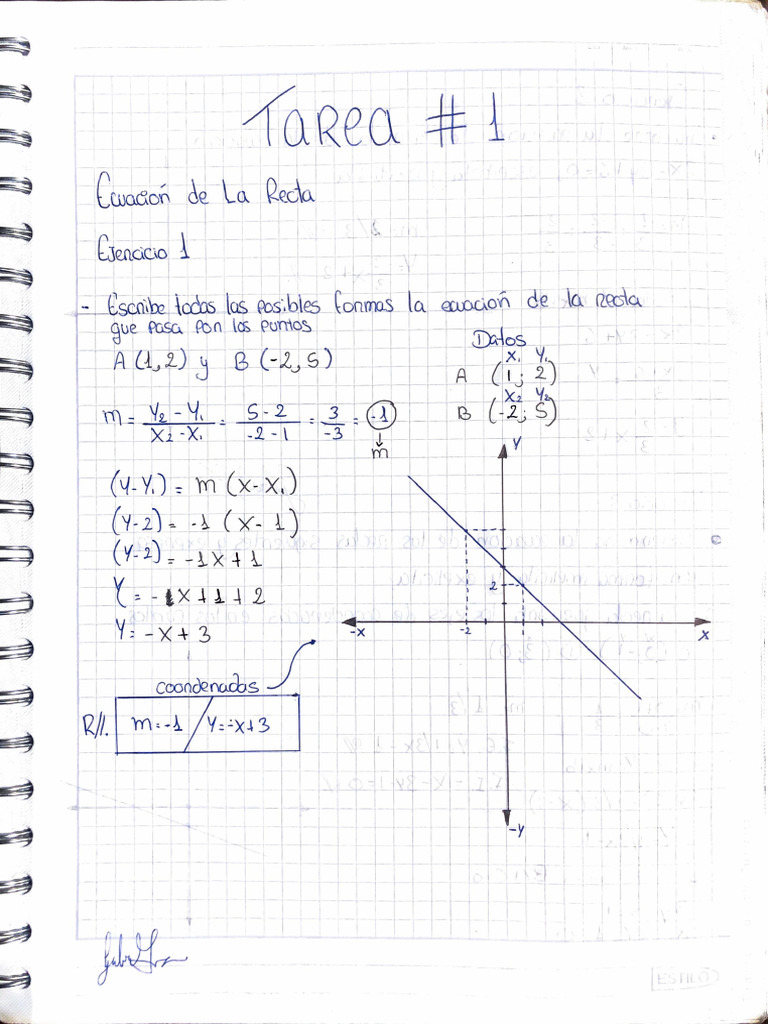 Tarea # 1
Ecuación de La Recta
Ejercicio 1
- Escribe todas las posibles formas la ecuación de la recta
que pasa por los puntos
A (1,2) y B (-2,5)
Datos
X₁ Y₁
A (1; 2)
X₂ Y₂
B (-2; 5)
m = Y₂ - Y₁ / X₂ - X₁ = 5 - 2 / -2 - 1 = 3 / -3 = -1
m
(Y-Y₁) = m (X-X₁)
(Y-2) = -1 (X-1)
(Y-2) = -1X+1
Y = -1X+1+2
Y = -X+3
Y
2
-X
-2
X
-Y
coordenadas
R//. m=-1 / Y=-X+3
ESTILO